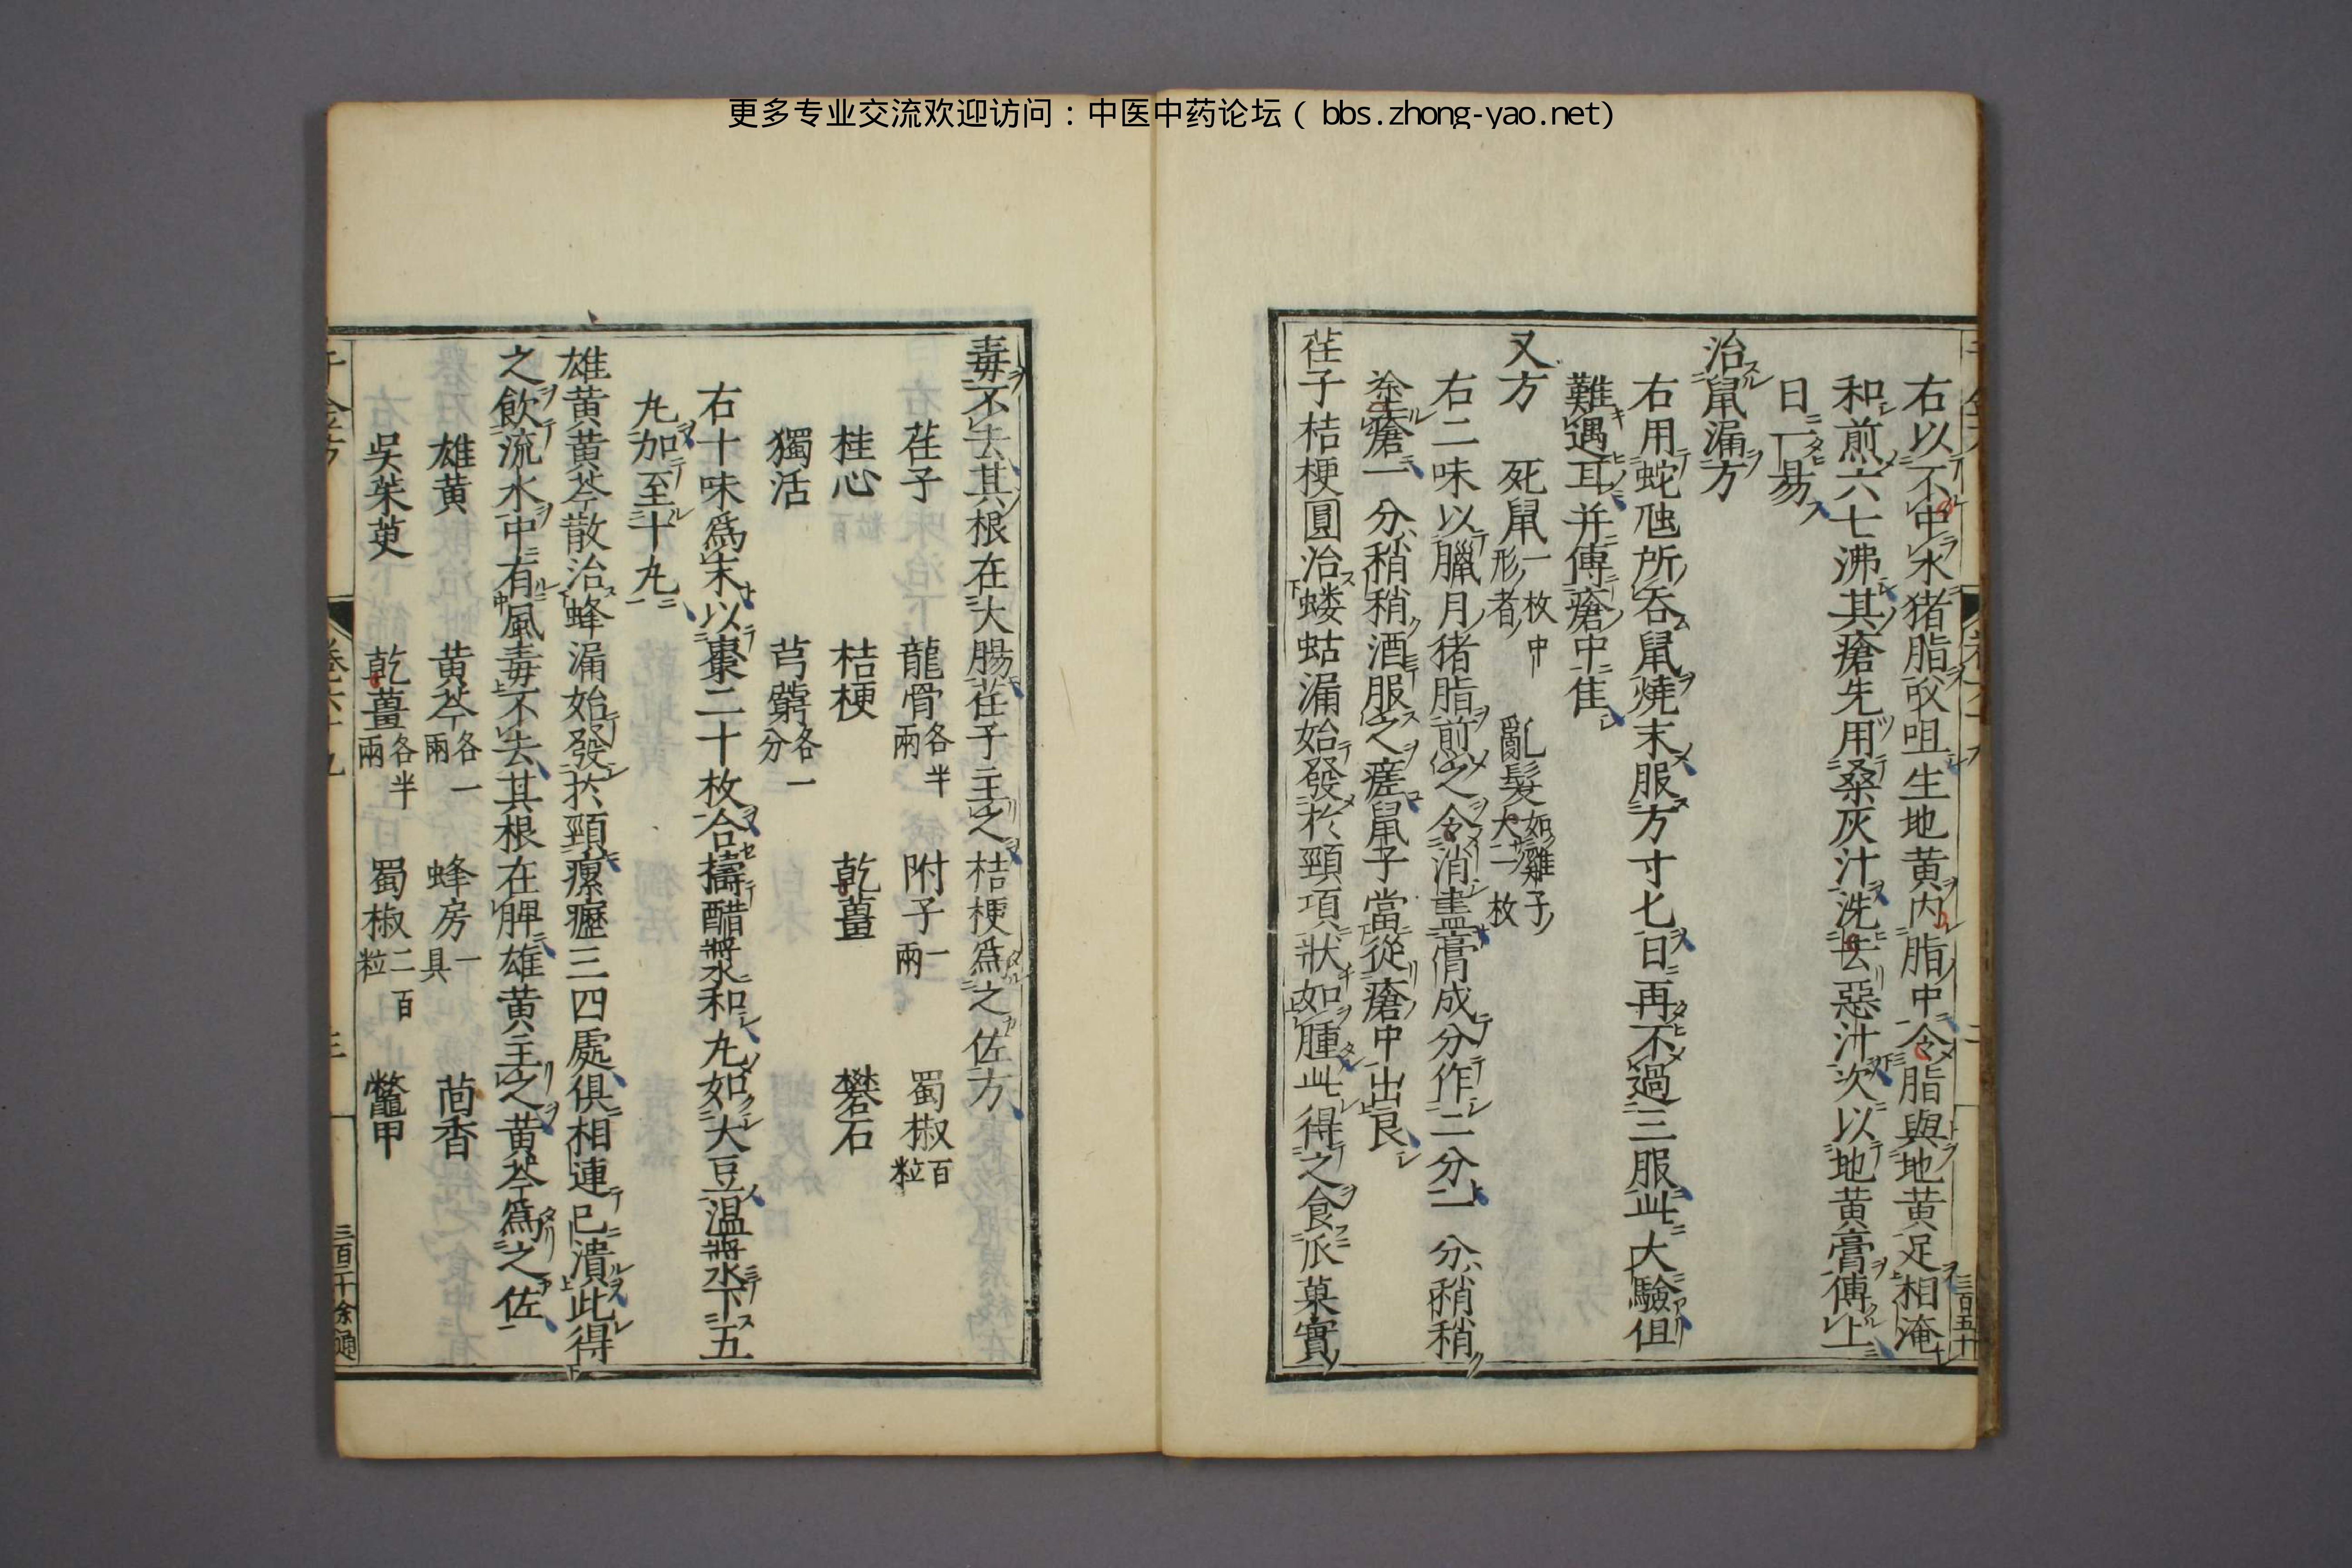 更多专业交流欢迎访问：中医中药论坛（bbs.zhong-yao.net）
右以不中水猪脂㕮咀生地黄内脂中令脂與地黄足相淹
和煎六七沸其瘡先用桑灰汁洗去惡汁次以地黄膏傅上
日一易
治鼠漏方
右用蛇虺所吞鼠燒末服方寸匕日再不過三服此大驗但
難遇耳并傅瘡中隹
又方 死鼠一枚中形者 亂髮如雞子大二枚
右二味以臘月猪脂煎之令消盡膏成分作二分一分稍稍
塗瘡一分稍稍酒服之瘥鼠子當從瘡中出良
荏子桔梗圓治蝼蛄漏始發於頸項狀如腫此得之食瓜菓實
毒不去其根在大腸荏子主之桔梗爲之佐方
荏子 龍骨各半兩 附子一兩 蜀椒百粒
桂心 桔梗 乾薑 礬石
獨活 芎藭各一分
右十味爲末以棗二十枚合擣醋漿和丸如大豆温漿下五
丸加至十丸
雄黄黄芩散治蜂漏始發於頸瘰癧三四處俱相連已潰此得
之飲流水中有風毒不去其根在脾雄黄主之黄芩爲之佐
雄黄 黄芩各一兩 蜂房一具 茴香
吳茱萸 乾薑各半兩 蜀椒二百粒 鱉甲
卷六十九
三